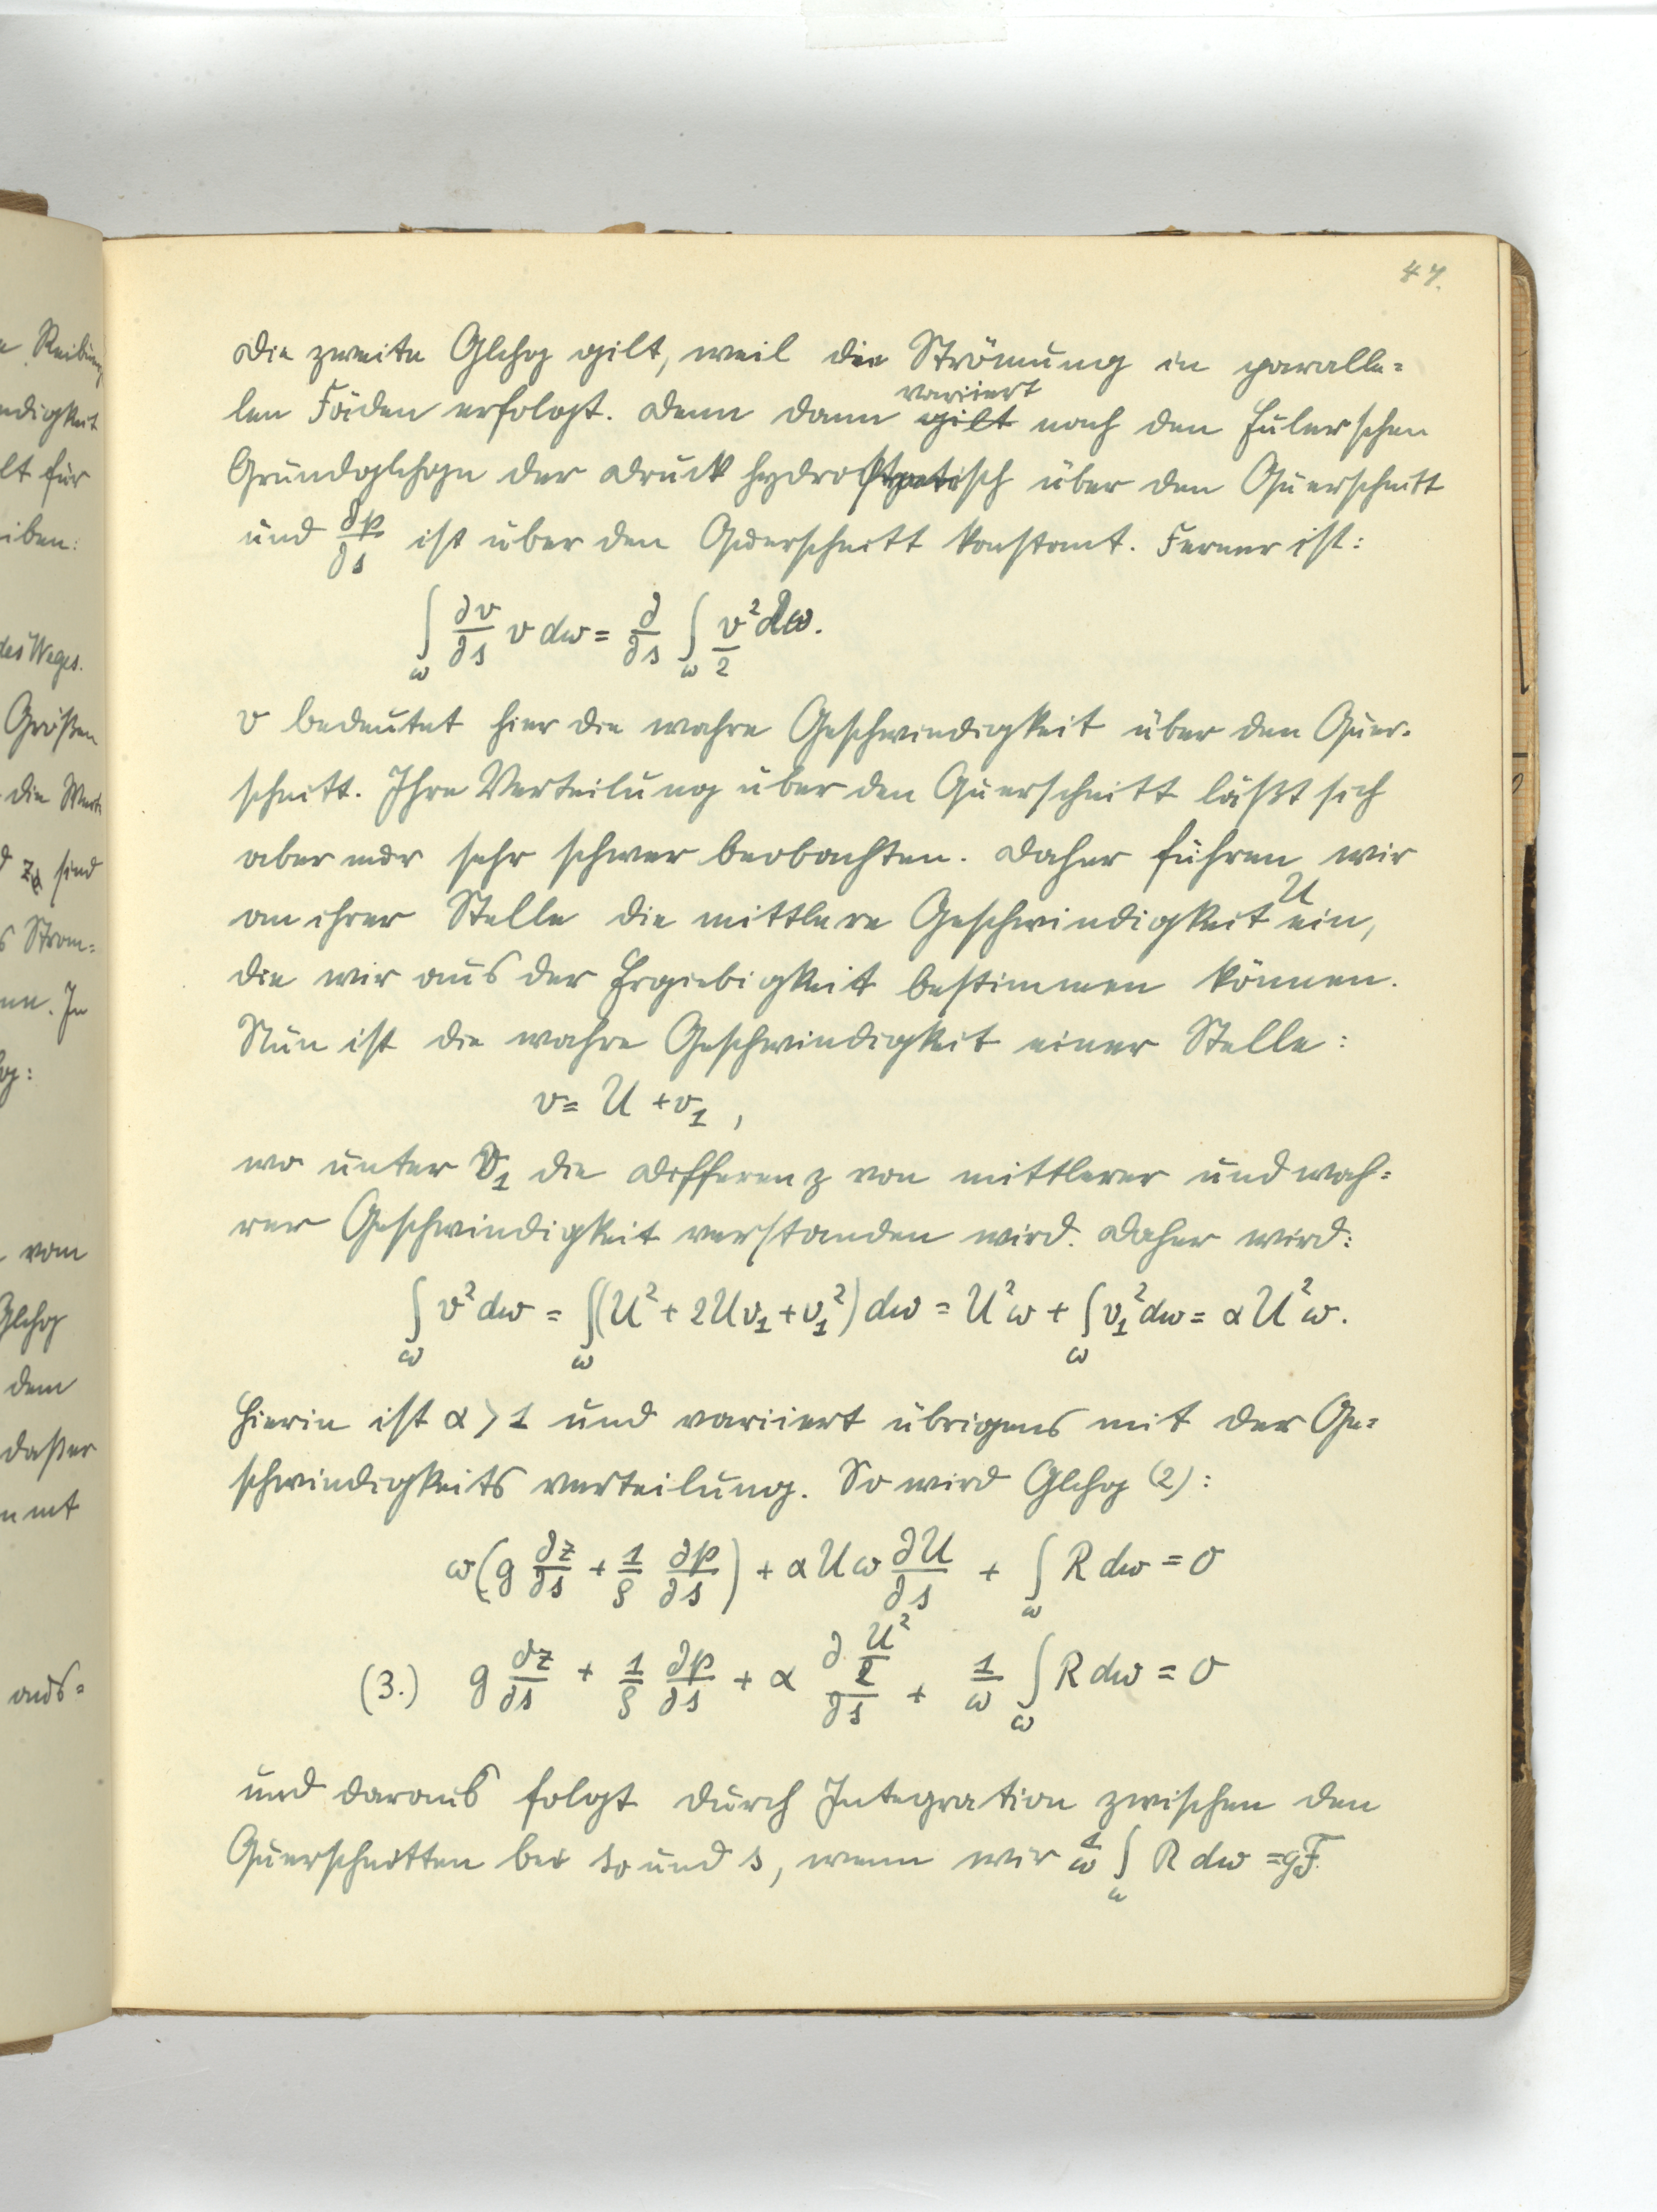 47.
Die zweite Glchg gilt, weil die Strömung in paralle=
len Fäden erfolgt. Denn dann variiert nach den Eulerschen
Grundglchgn der Druck hydrostatisch über den Querschnitt
und ∂p/∂s ist über den Querschnitt konstant. Ferner ist:
∫_ω ∂v/∂s v dω = ∂/∂s ∫_ω v²/2 dω.
v bedeutet hier die wahre Geschwindigkeit über den Quer-
schnitt. Ihre Verteilung über den Querschnitt läßt sich
aber nur sehr schwer beobachten. Daher führen wir
an ihrer Stelle die mittlere Geschwindigkeit U ein,
die wir aus der Ergiebigkeit bestimmen können.
Nun ist die wahre Geschwindigkeit einer Stelle:
v = U + v₁,
wo unter v₁ die Differenz von mittlerer und wah=
rer Geschwindigkeit verstanden wird. Daher wird:
∫_ω v² dω = ∫_ω (U² + 2Uv₁ + v₁²) dω = U²ω + ∫_ω v₁² dω = αU²ω.
Hierin ist α > 1 und variiert übrigens mit der Ge=
schwindigkeitsverteilung. So wird Glchg (2):
ω(g ∂z/∂s + 1/ρ ∂p/∂s) + αUω ∂U/∂s + ∫_ω R dω = 0
(3.) g ∂z/∂s + 1/ρ ∂p/∂s + α ∂ U²/2 / ∂s + 1/ω ∫_ω R dω = 0
und daraus folgt durch Integration zwischen den
Querschnitten bei s₀ und s, wenn wir 1/ω ∫_ω R dω = gF